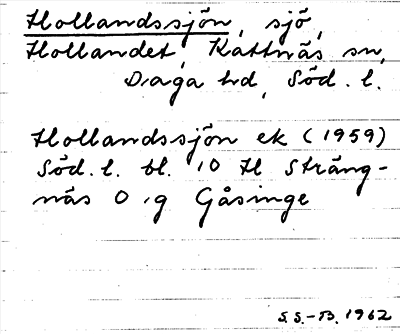 Hollandssjön, sjö,
Hollandet, Kattnäs sn,
Daga hd, Söd. l.
Hollandssjön ek (1959)
Söd. l. bl. 10 H Sträng-
näs O ig Gåsinge
S.S.-B. 1962